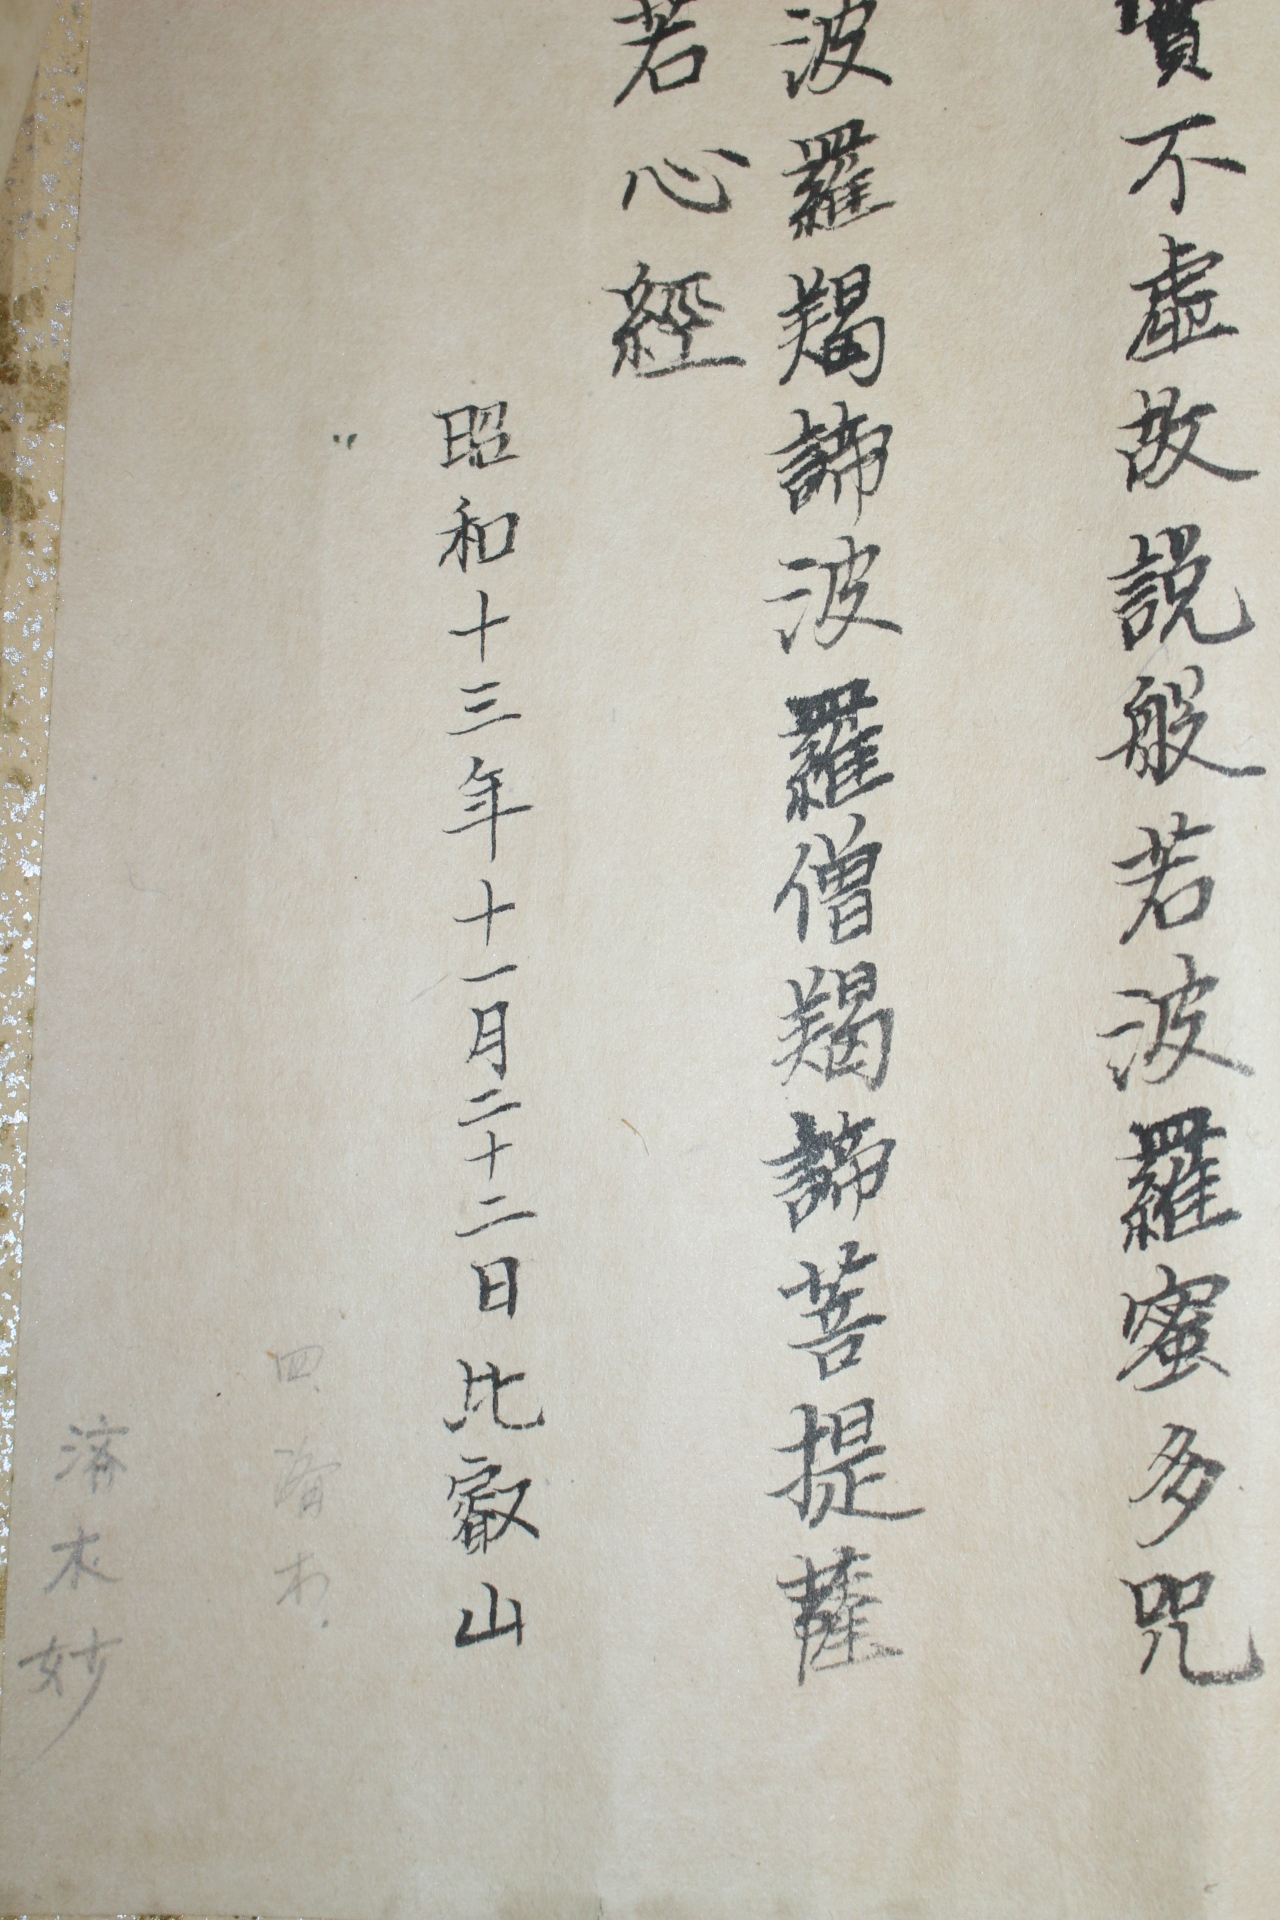 實不虛故說般若波羅蜜多咒
波羅羯諦波羅僧羯諦菩提薩
若心經
昭和十三年十一月二十二日比叡山
四
木妙